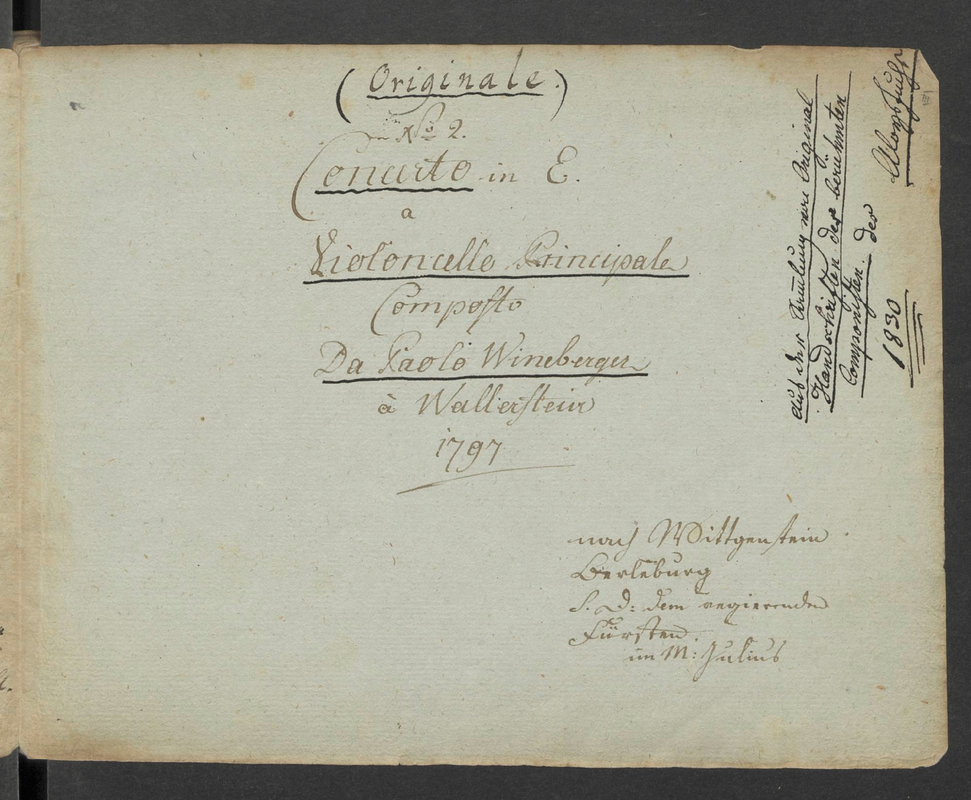 (Originale.)
No 2.
Concerto in E.
a
Violoncello Principale
Composto
Da Paolo Wineberger
à Wallerstein
1797
nach Wittgenstein
Berleburg
S. D: dem regierenden
Fürsten.
im M: Julius
Aus der Samlung von Original
Handschriften der berühmten
Componisten. des
Aloys Fuchs
1830